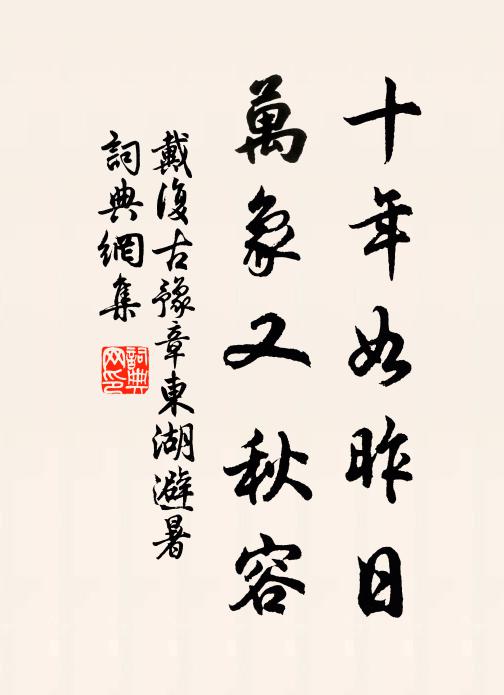 十年如昨日
萬象又秋容
戴復古豫章東湖避暑
詞典網集
詞典网印